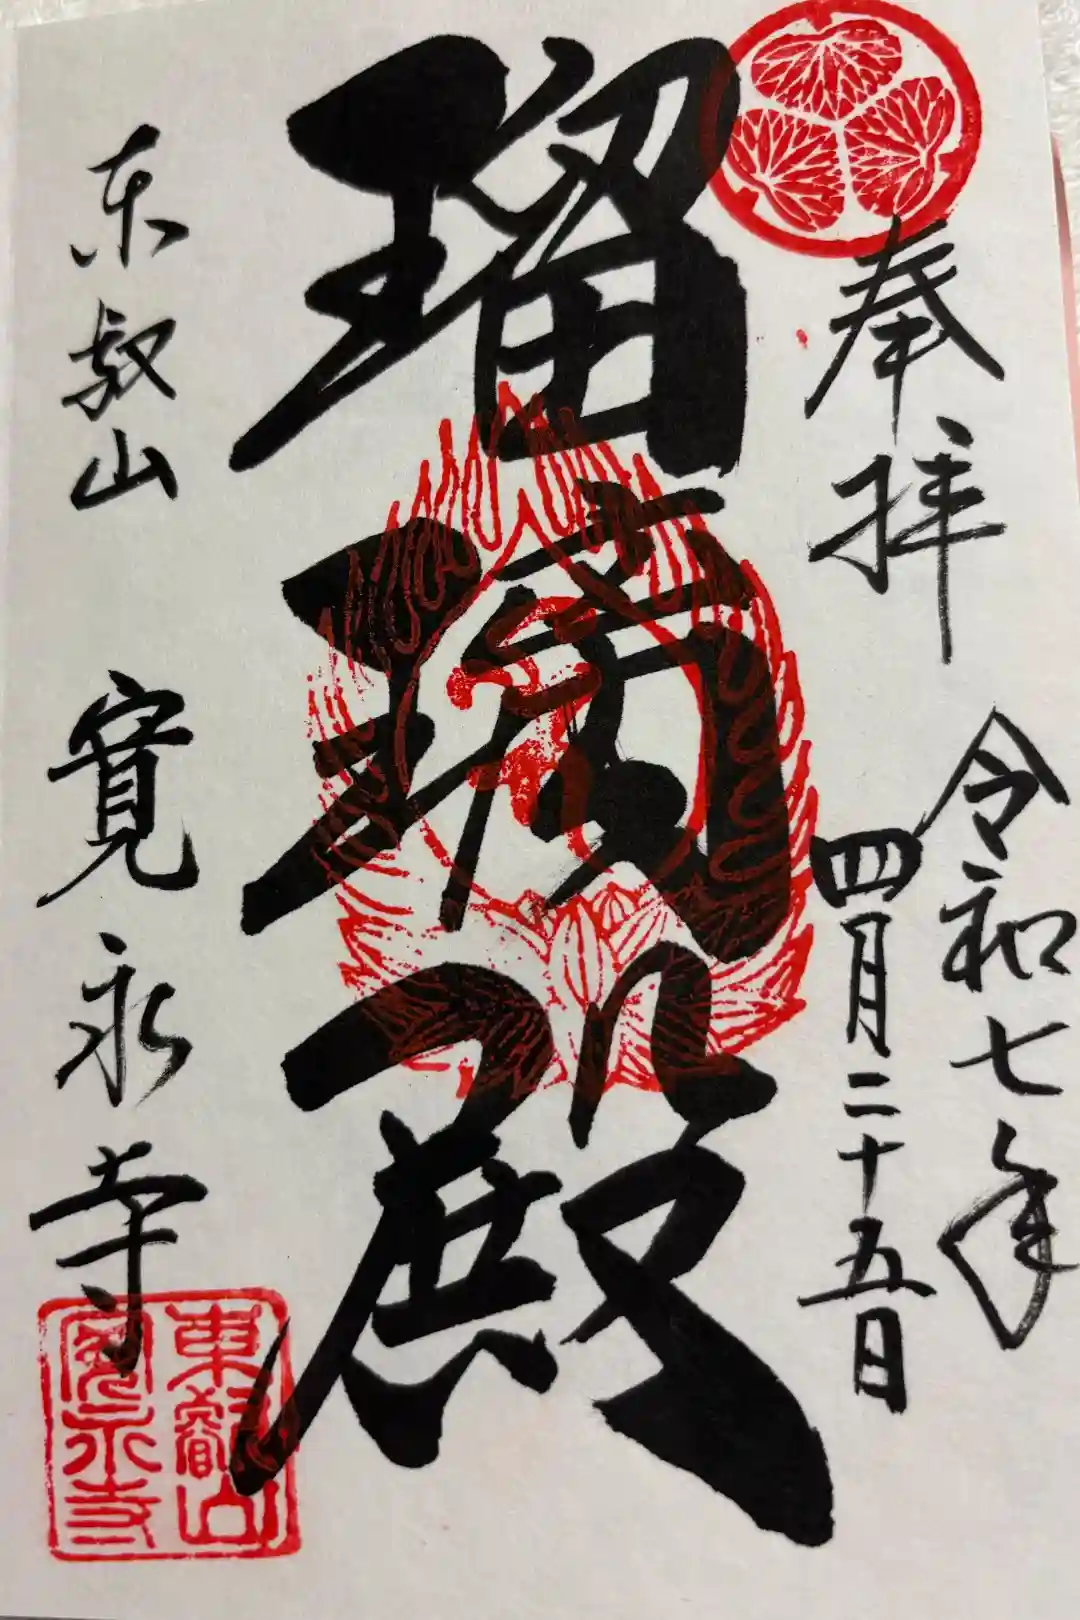 奉拝
令和七年
四月二十五日
瑠璃殿
东叡山 寛永寺
東叡山
寛永寺